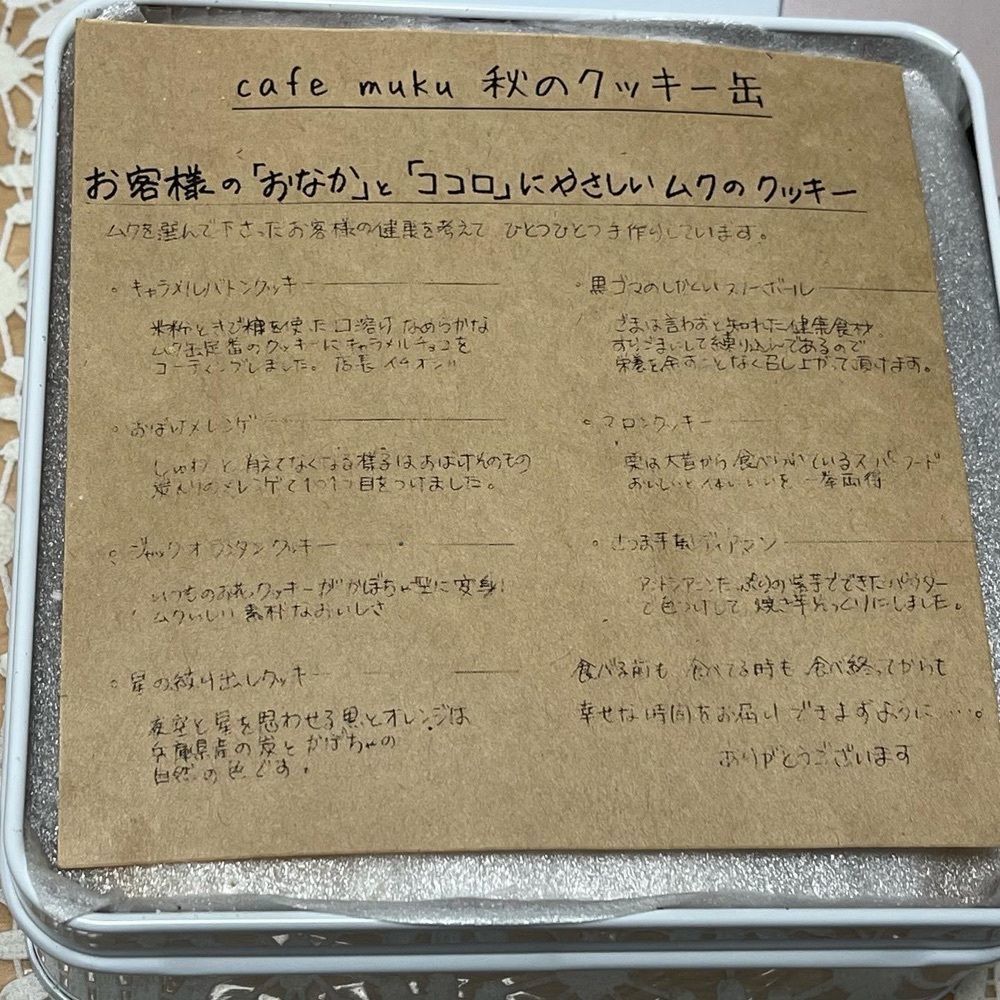 cafe muku 秋のクッキー缶
お客様の「おなか」と「ココロ」にやさしい ムクのクッキー
ムクを選んで下さったお客様の健康を考えて ひとつひとつ手作りしています。
。キャラメルバトンクッキー
米粉ときび糖を使った口溶けなめらかな
ムク缶定番のクッキーにキャラメルチョコを
コーティングしました。店長イチオシ!!
。おばけメレンゲ
しゅわっと消えてなくなる様子はおばけそのもの
炭入りのメレンゲで1つ1つ目をつけました。
。ジャックオランタンクッキー
いつものお花クッキーがかぼちゃ型に変身!
ムクらしい素朴なおいしさ
。星の絞り出しクッキー
夜空と星を思わせる黒とオレンジは
兵庫県産の炭とかぼちゃの
自然の色です。
。黒ゴマのしかくいスノーボール
ごまは言わずと知れた健康食材
すりごまにして練り込んであるので
栄養を余すことなく召し上がって頂けます。
。マロンクッキー
栗は大昔から食べられているスーパーフード
おいしいと体にいいを一挙両得
。さつま芋風ディアマン
アントシアニンたっぷりの紫芋でできたパウダー
で色づけして、焼き芋そっくりにしました。
食べる前も 食べてる時も 食べ終ってからも
幸せな時間をお届けできますように…。
ありがとうございます